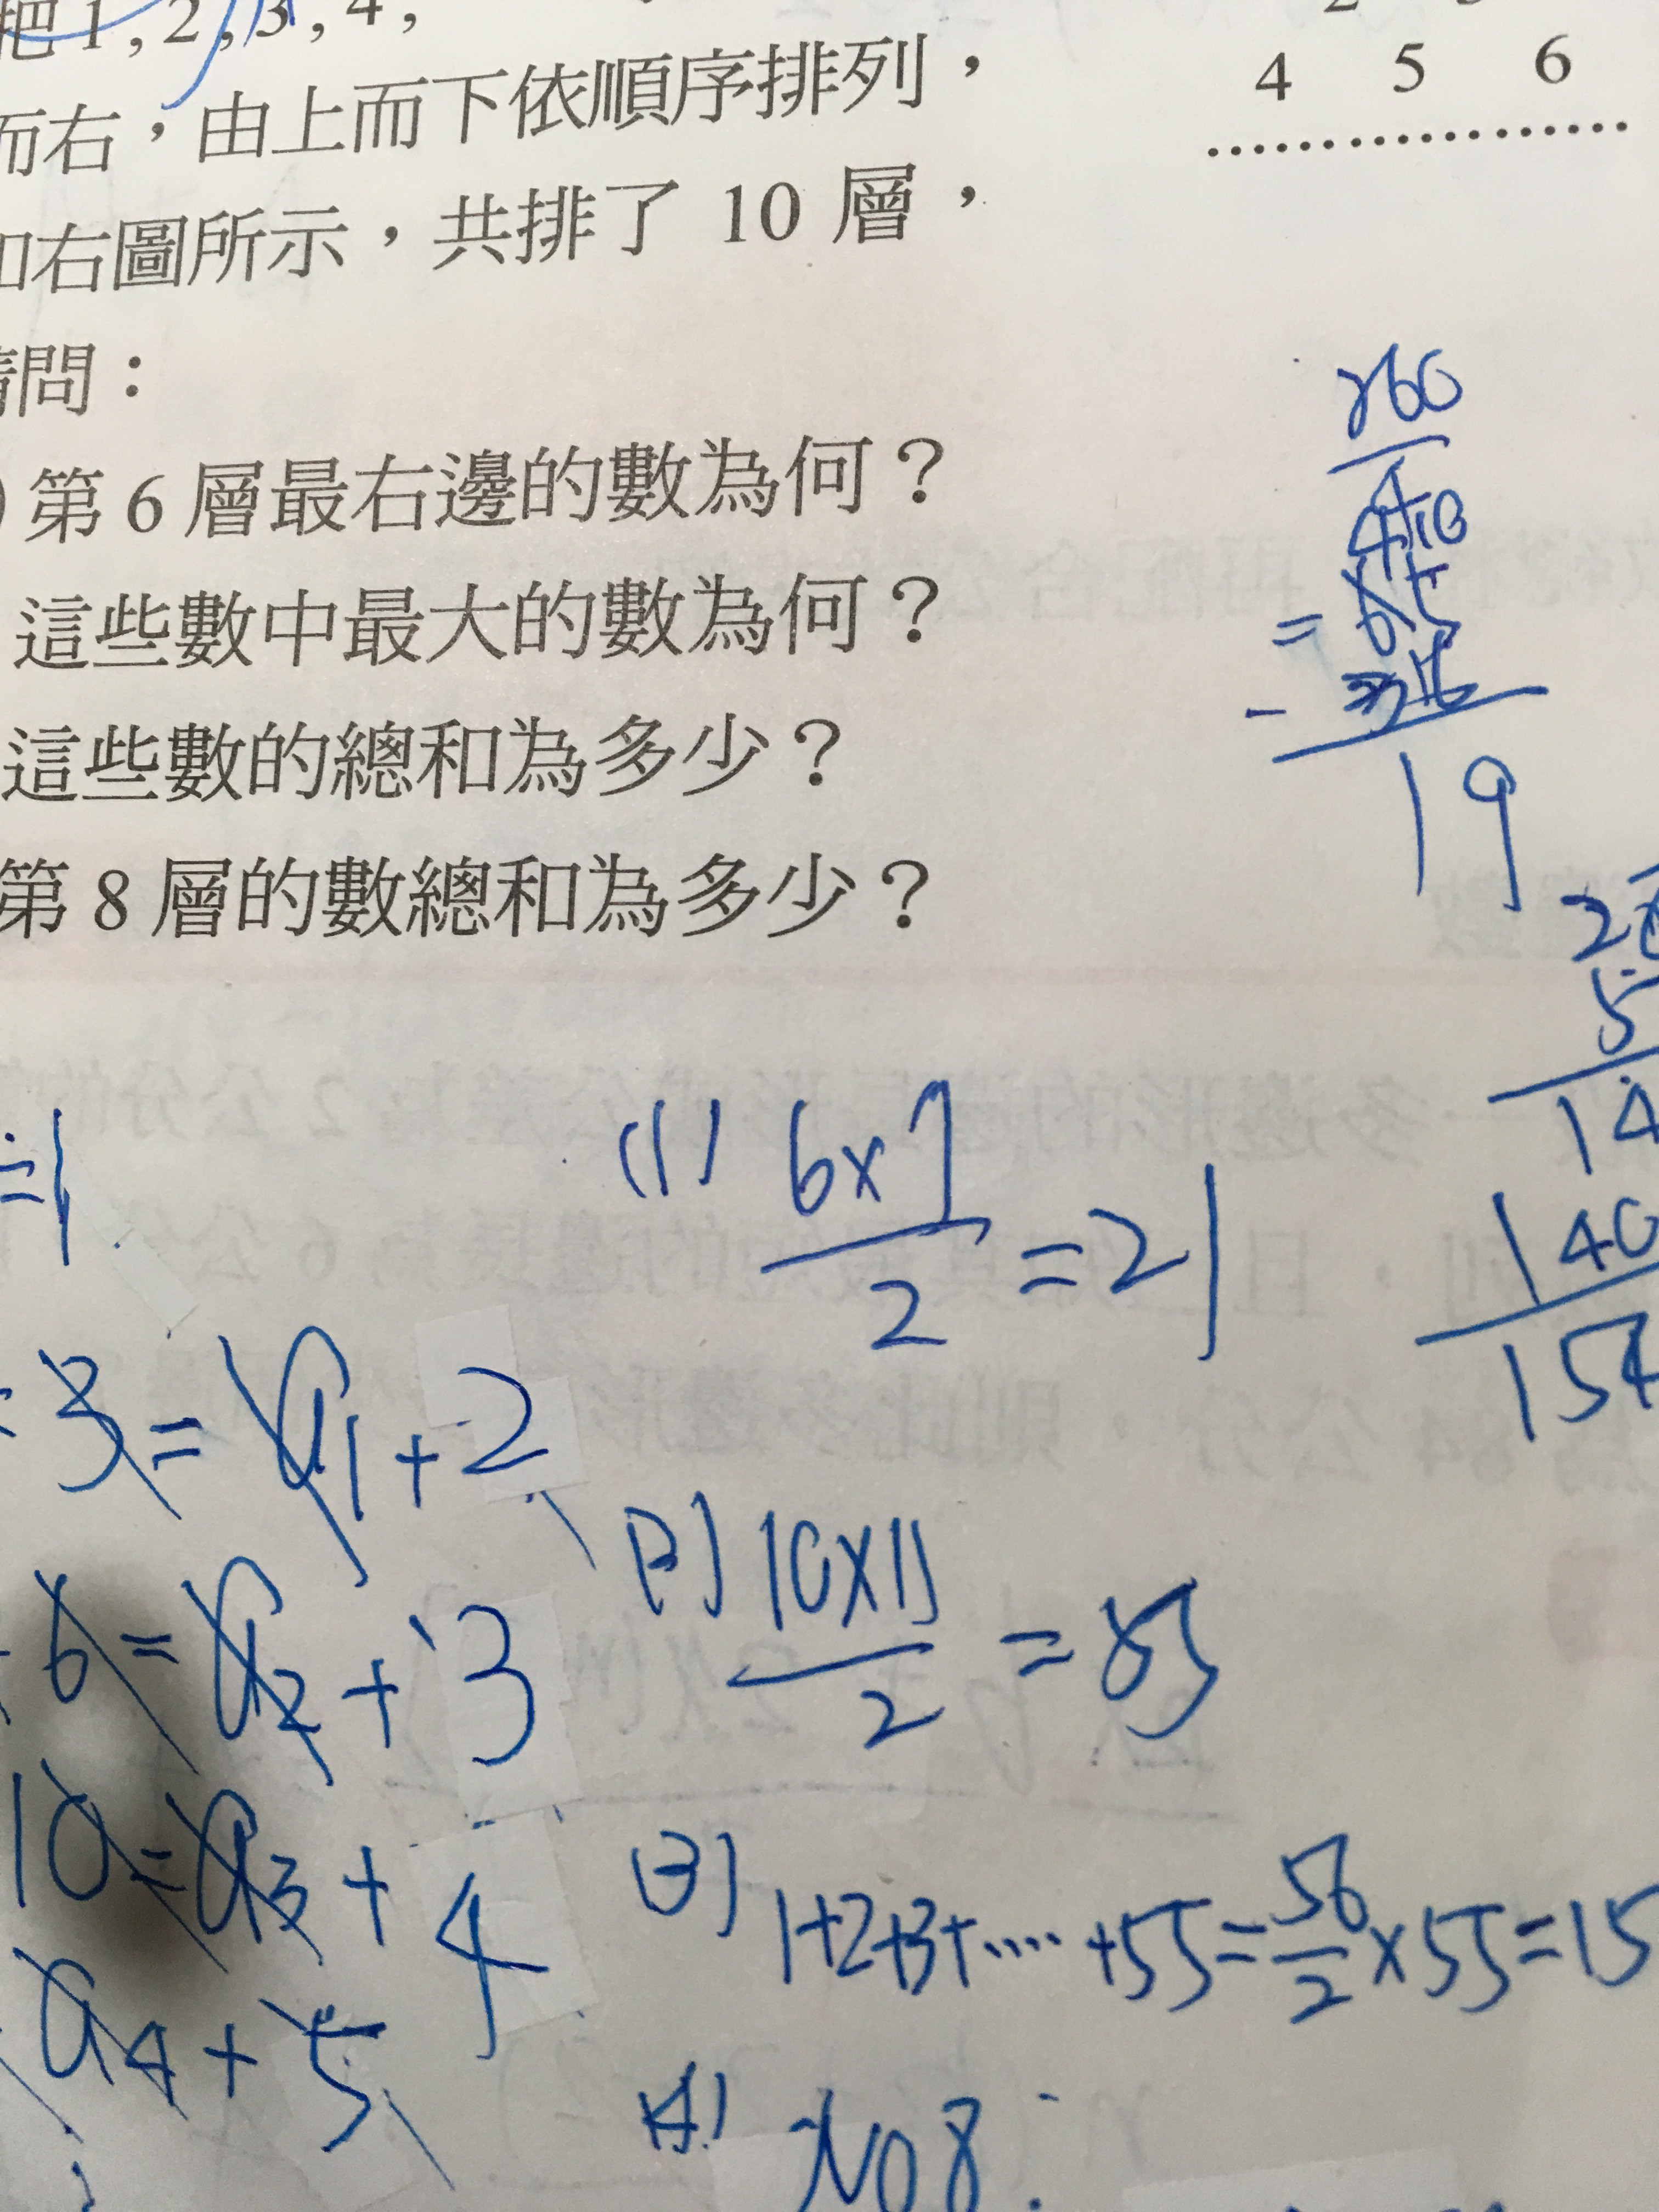 把1,2,3,4,
而右，由上而下依順序排列，
4 5 6
如右圖所示，共排了 10 層，
請問：
) 第 6 層最右邊的數為何？
這些數中最大的數為何？
這些數的總和為多少？
第 8 層的數總和為多少？
260
4
= 65
19
5
14
140
154
=1
3=a1+2
6=a2+3
10=a3+4
a4+5
(1) 6×7
2
=21
(2) 10×11
2
=55
(3) 1+2+3+····+55=56/2×55=15
(4) No8: